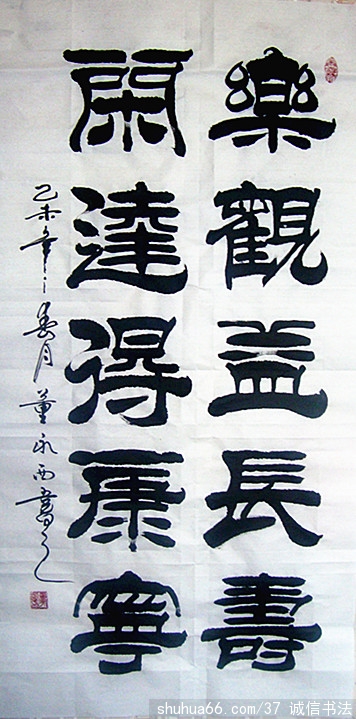 樂觀益長壽
閑達得康寧
乙未年春月董永西書之
shuhua66.com/37 诚信书法